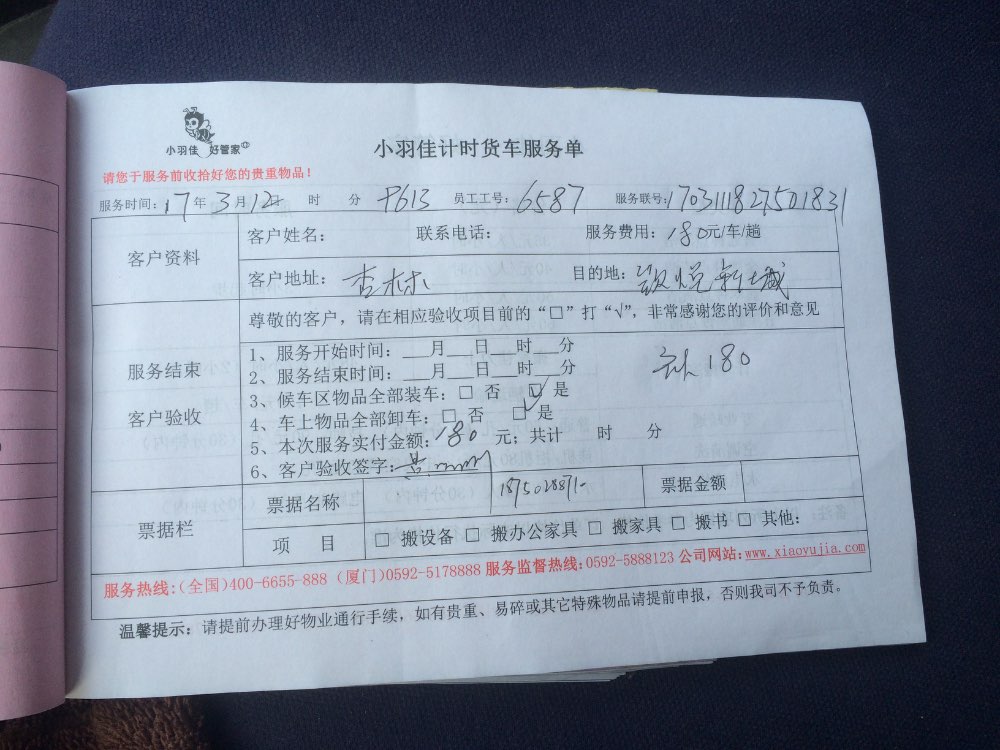 小羽佳 好管家
小羽佳计时货车服务单
请您于服务前收拾好您的贵重物品!
服务时间: 17年 3月12 时 分 员工工号: 6587 服务联号:
客户资料 客户姓名: 联系电话: 服务费用: 180元/车/趟
客户地址: 杏林 目的地: 新城
尊敬的客户，请在相应验收项目前的“□”打“√”，非常感谢您的评价和意见
服务结束
客户验收
1、服务开始时间: ___月___日___时___分
2、服务结束时间: ___月___日___时___分
180
3、候车区物品全部装车: □ 否 ☑ 是
4、车上物品全部卸车: □ 否 ☑ 是
5、本次服务实付金额: 180 元; 共计 时 分
6、客户验收签字:
票据栏 票据名称 票据金额
项 目 □ 搬设备 □ 搬办公家具 □ 搬家具 □ 搬书 □ 其他:
服务热线:(全国)400-6655-888 (厦门)0592-5178888 服务监督热线:0592-5888123 公司网站:www.xiaoyujia.com
温馨提示: 请提前办理好物业通行手续，如有贵重、易碎或其它特殊物品请提前申报，否则我司不予负责。